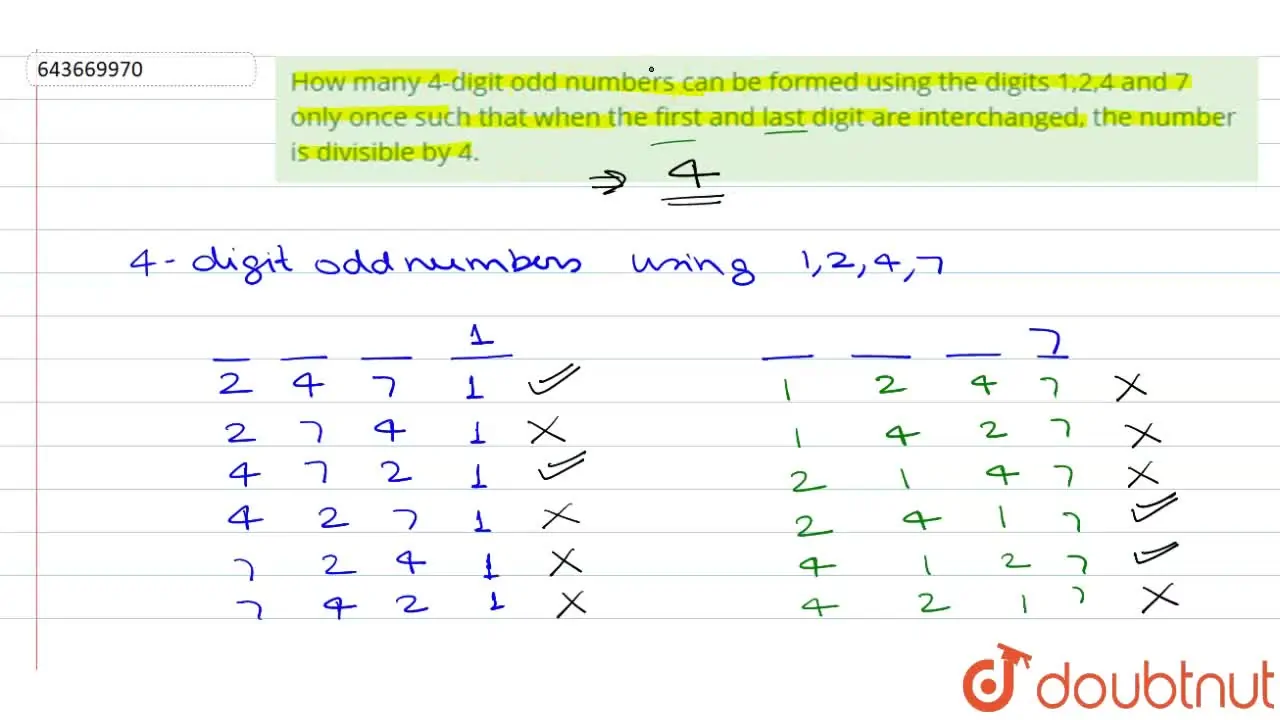 643669970
How many 4-digit odd numbers can be formed using the digits 1,2,4 and 7
only once such that when the first and last digit are interchanged, the number
is divisible by 4.
⇒ 4
4- digit odd numbers using 1,2,4,7
1 7
2 4 7 1 ✓ 1 2 4 7 ×
2 7 4 1 × 1 4 2 7 ×
4 7 2 1 ✓ 2 1 4 7 ×
4 2 7 1 × 2 4 1 7 ✓
7 2 4 1 × 4 1 2 7 ✓
7 4 2 1 × 4 2 1 7 ×
doubtnut